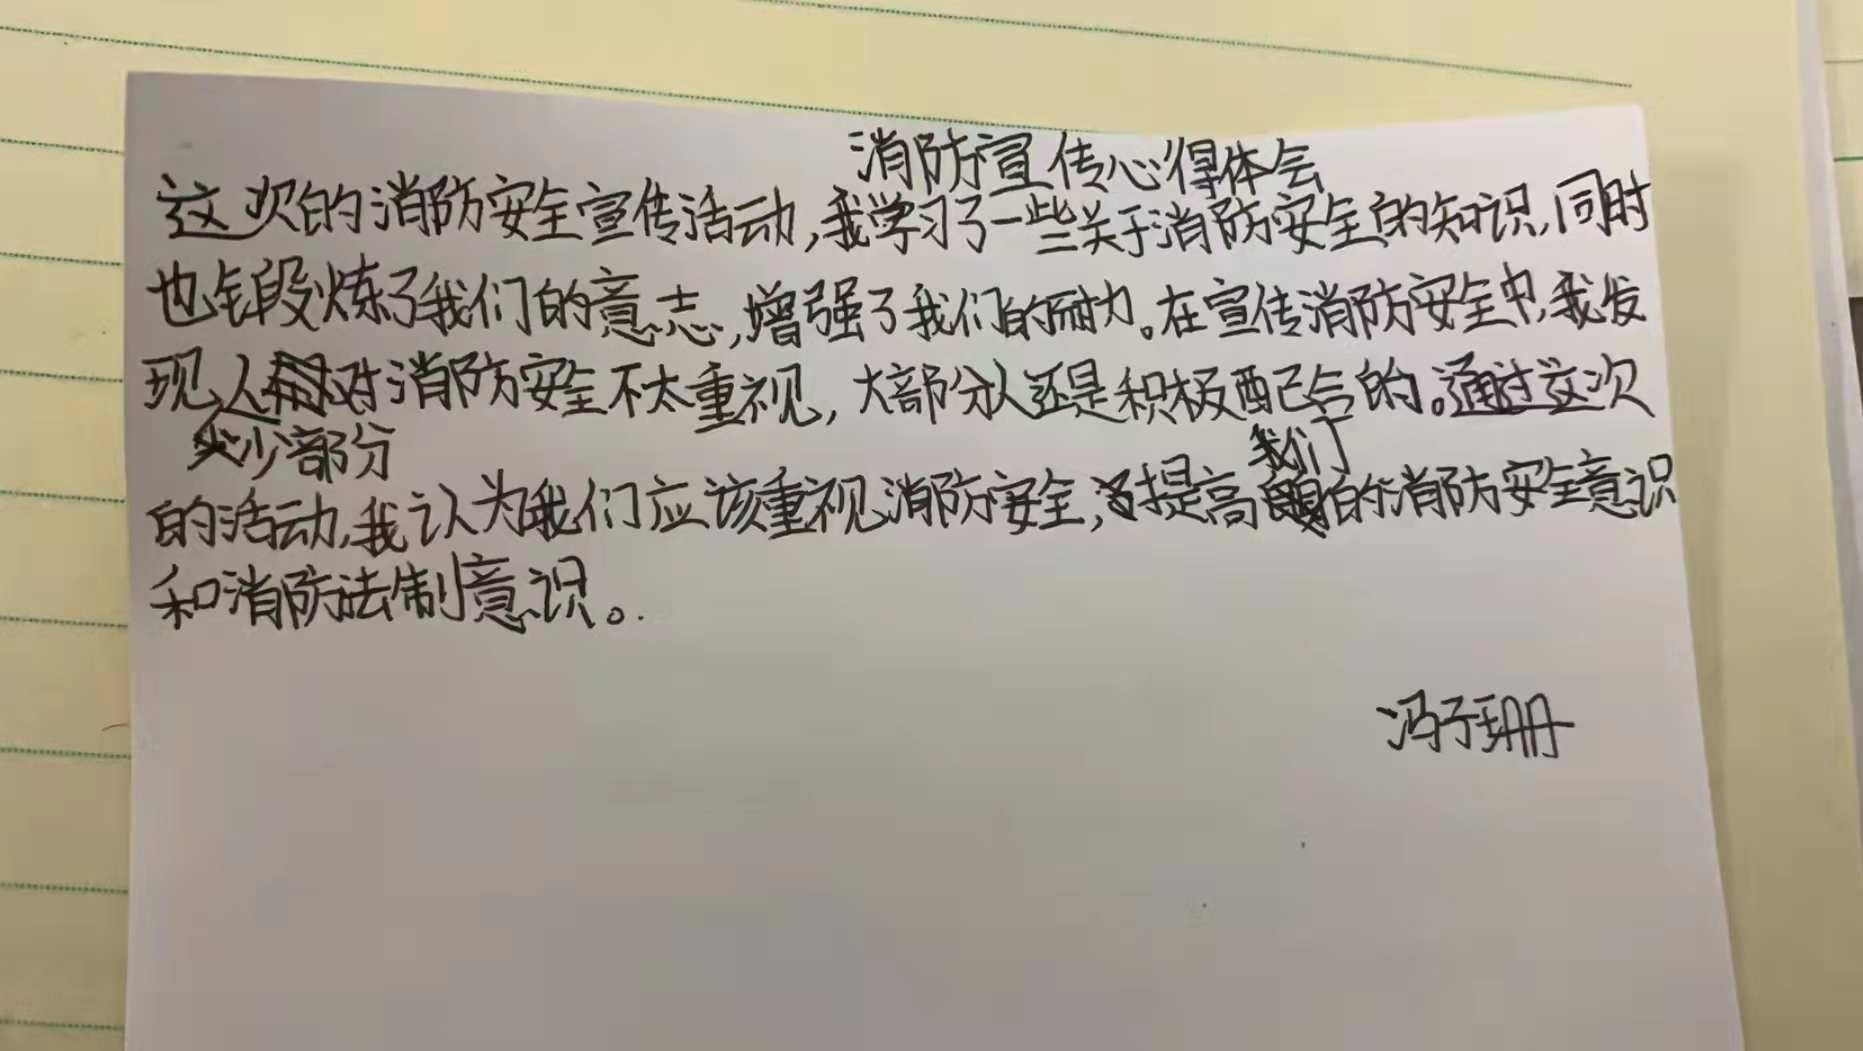 消防宣传心得体会
这次的消防安全宣传活动,我学习了一些关于消防安全的知识,同时
也锻炼了我们的意志,增强了我们的耐力。在宣传消防安全中,我发
现人对消防安全不太重视,大部分人还是积极配合的。通过这次
少部分
我们
的活动,我认为我们应该重视消防安全,提高的消防安全意识
和消防法制意识。
冯子珊